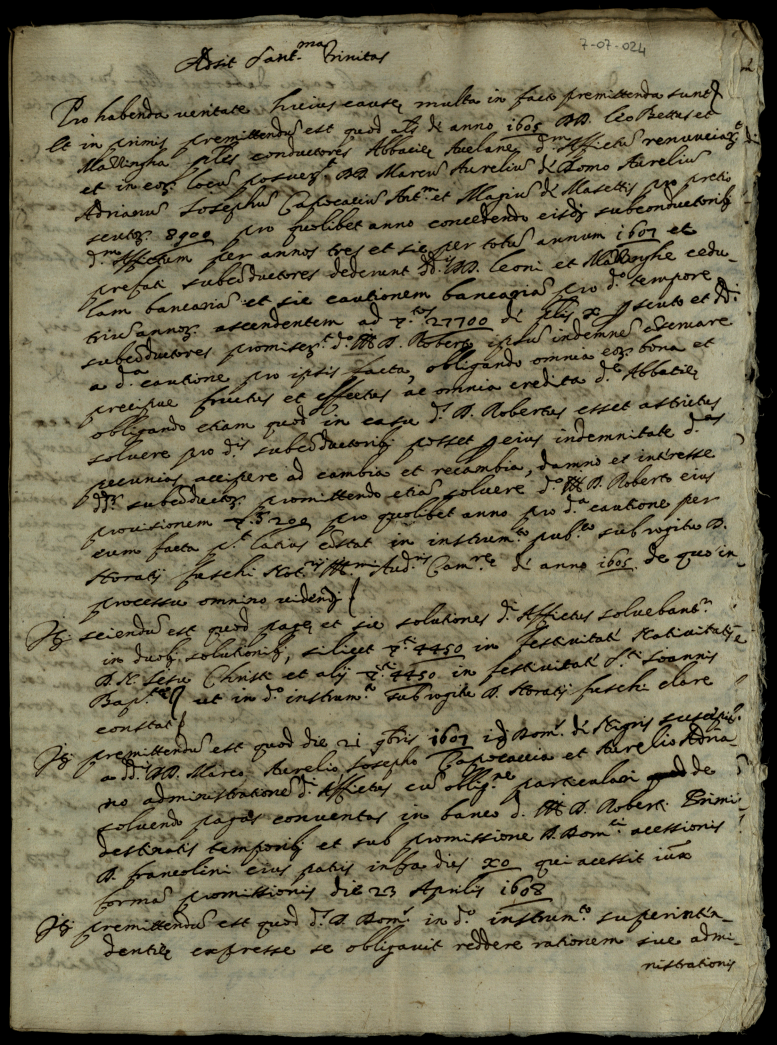 7-07-024
Adsit Sant.ma Trinitas
Pro habenda veritate huius causę multa in facto premittenda sunt
Et in primis premittendũ est quod als de anno 1605 DD. Leo Bettus et
Mallingha conductores Abbatię Avelanę d.m Affictũ renunciar.t
et in eoȝ locũ posuer.t DD Marcũ Aureliũ de Domo Aureliũ
Adrianũ Josephũ Capocaciũ Ant.m et Magiũ de Masettis pro pretio
scutoȝ 8900 pro quolibet anno concedendo eisdȝ subconductoribȝ
d.m Affictum per annos tres et sic per totũ annum 1607 et
prefati subcõductores dederunt dd. DD. Leoni et Mallinghę cedu-
lam bancariã et sic cautionem bancariã pro d.o tempore
triũ annoȝ ascendentem ad 27700 de scuto et dd.i
subcõductores promiser.t d.o Ill. D. Roberto ipsũ indemnẽ cõservare
a d.a cautione pro ipsis facta, obligando omnia eoȝ bona et
precipue fructus et effectus ac omnia credita d.ę Abbatię
obligando etiam quod in casu d.s D. Robertus esset astrictus
solvere pro d.is subcõductoribȝ posset eius indemnitate d.as
pecunias accipere ad cambia et recambia, damno et interesse
dd. subcõductoȝ promittendo etiã solvere d.o Ill. D. Roberto eius
provisionem 200 pro quolibet anno pro d.a cautione per
eum facta p.t latius cõstat in instrum.to pub.co subrogitu D.
Horatij fuschi Not. Ill.mi Aud.ris Cam.rę de anno 1605 de quo in
processu omnino videndȝ
Itȝ sciendũ est quod pagę et sic solutiones d.i Affictus solvebant.r
in duobȝ solutionibȝ, silicet 4450 in festivitatẽ Nativitatis
D. N. Jesu Christi et alij 4450 in festivitatẽ S.ti Joannis
Bap.tę ut in d.o instrum.to subrogitu D. Horatij fuschi clare
constat
Itȝ premittendũ est quod die 21 9bris 1607 Dom.s de Nigris suscepit
a dd. DD. Marco Aurelio Josepho Capocaccia et Aurelio Adria-
no administrationẽ d.i Affictus cũ oblig.ne particulari de
solvendo pagas conventas in banco d. Ill. D. Roberti Primi
destinatis temporibȝ et sub promissione D. Dom.ci acessionis
D. francolini eius patris infra dies xo qui acessit iuxȝ
formã promissionis die 23 Aprilis 1608
Itȝ premittendũ est quod d.s D. Dom.s in d.o instrum.to superintẽ-
dentię expresse se obligavit reddere rationem sue admi-
nistrationis